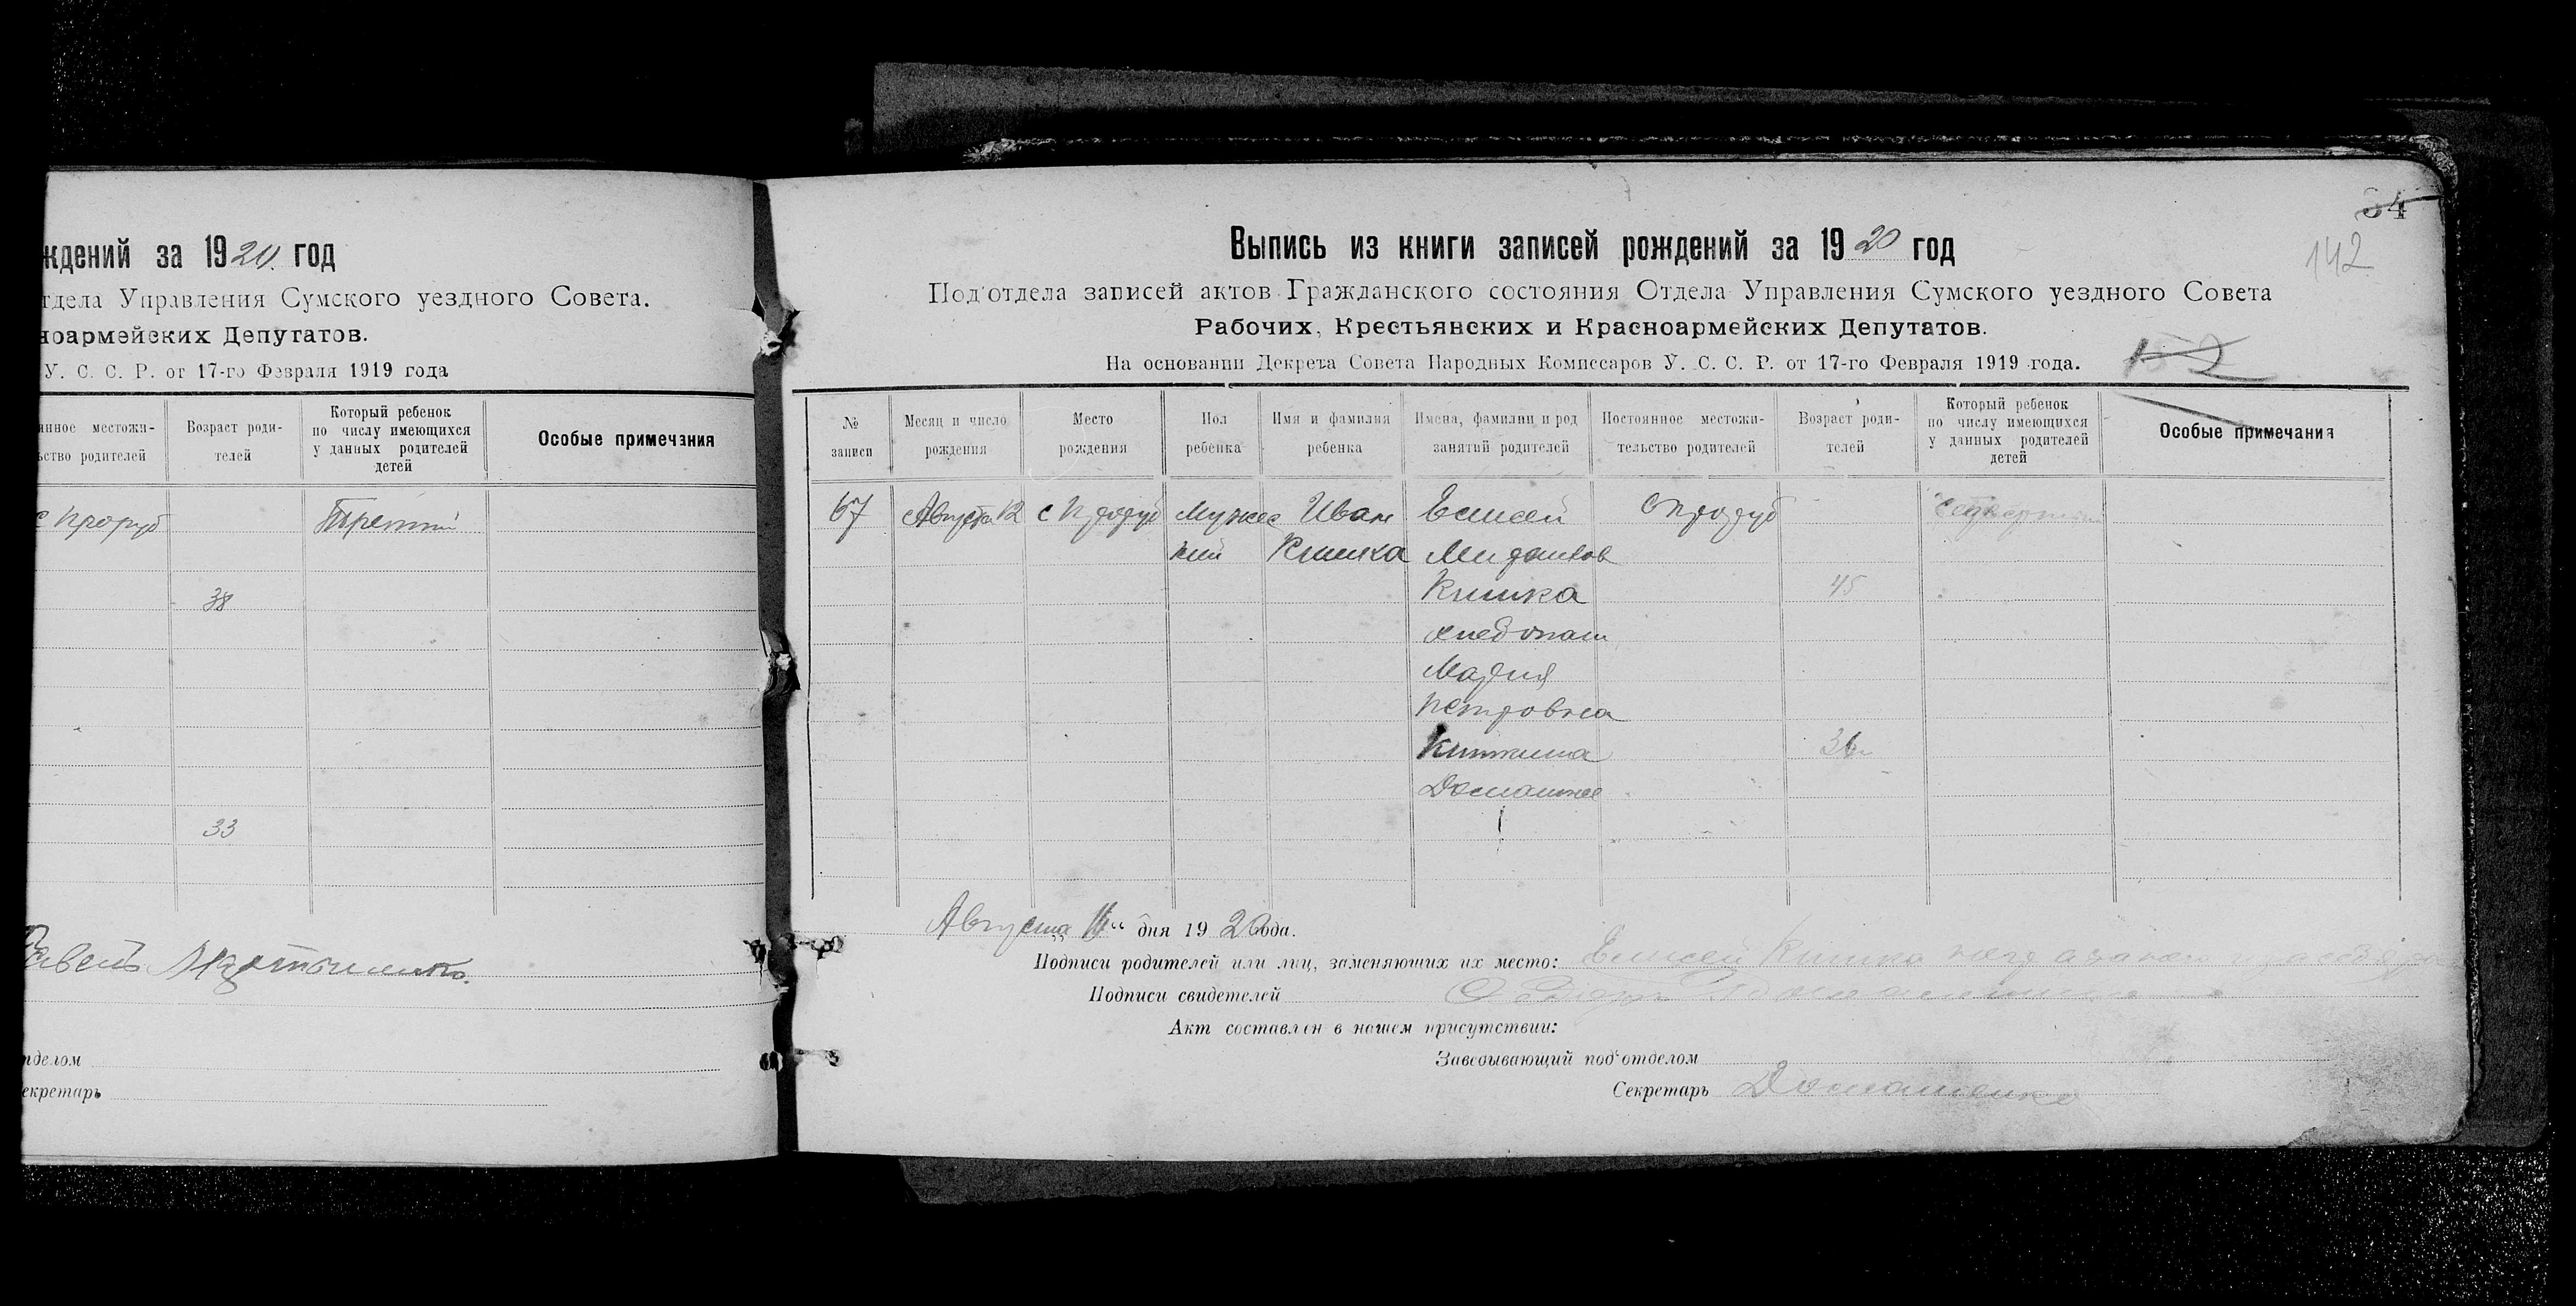 ждений за 1920. год
тдела Управления Сумского уездного Совета.
ноармейских Депутатов.
У. С. С. Р. от 17-го Февраля 1919 года
янное местожи-
ьство родителей
Возраст роди-
телей
Который ребенок
по числу имеющихся
у данных родителей
детей
Особые примечания
с Проруб
Третий
38
33
тделом
екретарь
34
142
Выпись из книги записей рождений за 1920 год
Под'отдела записей актов Гражданского состояния Отдела Управления Сумского уездного Совета
Рабочих, Крестьянских и Красноармейских Депутатов.
На основании Декрета Совета Народных Комиссаров У. С. С. Р. от 17-го Февраля 1919 года.
№
записи
Месяц и число
рождения
Место
рождения
Пол
ребенка
Имя и фамилия
ребенка
Имена, фамилии и род
занятий родителей
Постоянное местожи-
тельство родителей
Возраст роди-
телей
Который ребенок
по числу имеющихся
у данных родителей
детей
Особые примечания
67
Августа 12
с Проруб
Мужес
кий
Иван
Кишка
Елисей
Кишка
хлебопаш
Мария
Петровна
Кишкина
Домашнее
с Проруб
45
36
Августа дня 1920 года.
Подписи родителей или лиц, заменяющих их место: Елисей Кишка
Подписи свидетелей
Акт составлен в нашем присутствии:
Заведывающий под'отделом
Секретарь Домашенко